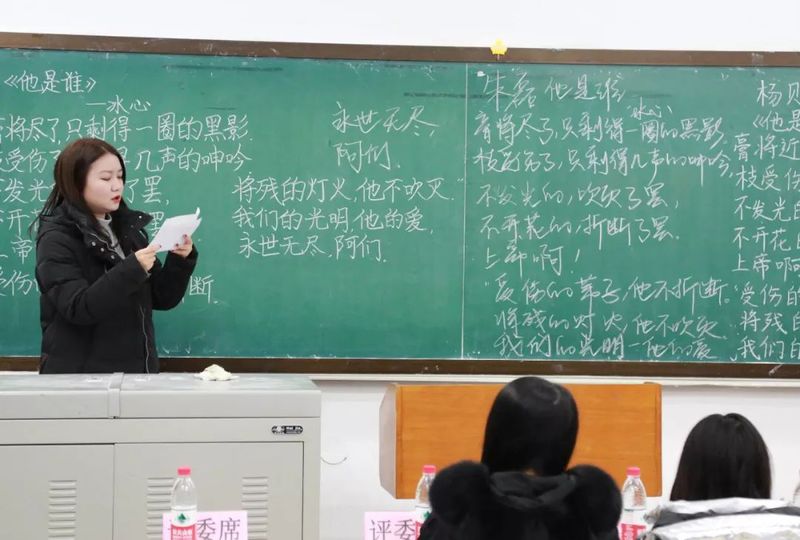 《他是谁》
—冰心
膏将尽了只剩得一圈的黑影.
受伤了
几声的呻吟
不发光
了罢,
不开
罢.
上帝
受伤
断.
永世无尽,
阿们.
将残的灯火,他不吹灭.
我们的光明.他的爱,
永世无尽.阿们.
朱磊 他是谁
冰心
膏将尽了,只剩得一圈的黑影.
只剩得几声的呻吟,
不发光的,吹灭了罢,
不开花的,折断了罢.
上帝啊!
"受伤的苇子,他不折断.
将残的灯火,他不吹灭
我们的光明—他的爱
杨贝
《他是
膏将近
枝受伤
不发光的
不开花的
上帝啊
"受伤的
将残的
我们的
委席
评委